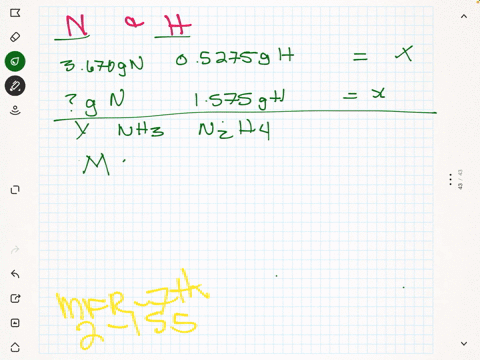 N & H
3.670gN 0.5275gH = X
? g N 1.575gH = x
Y NH3 N2H4
M
MFR-7th
2-155